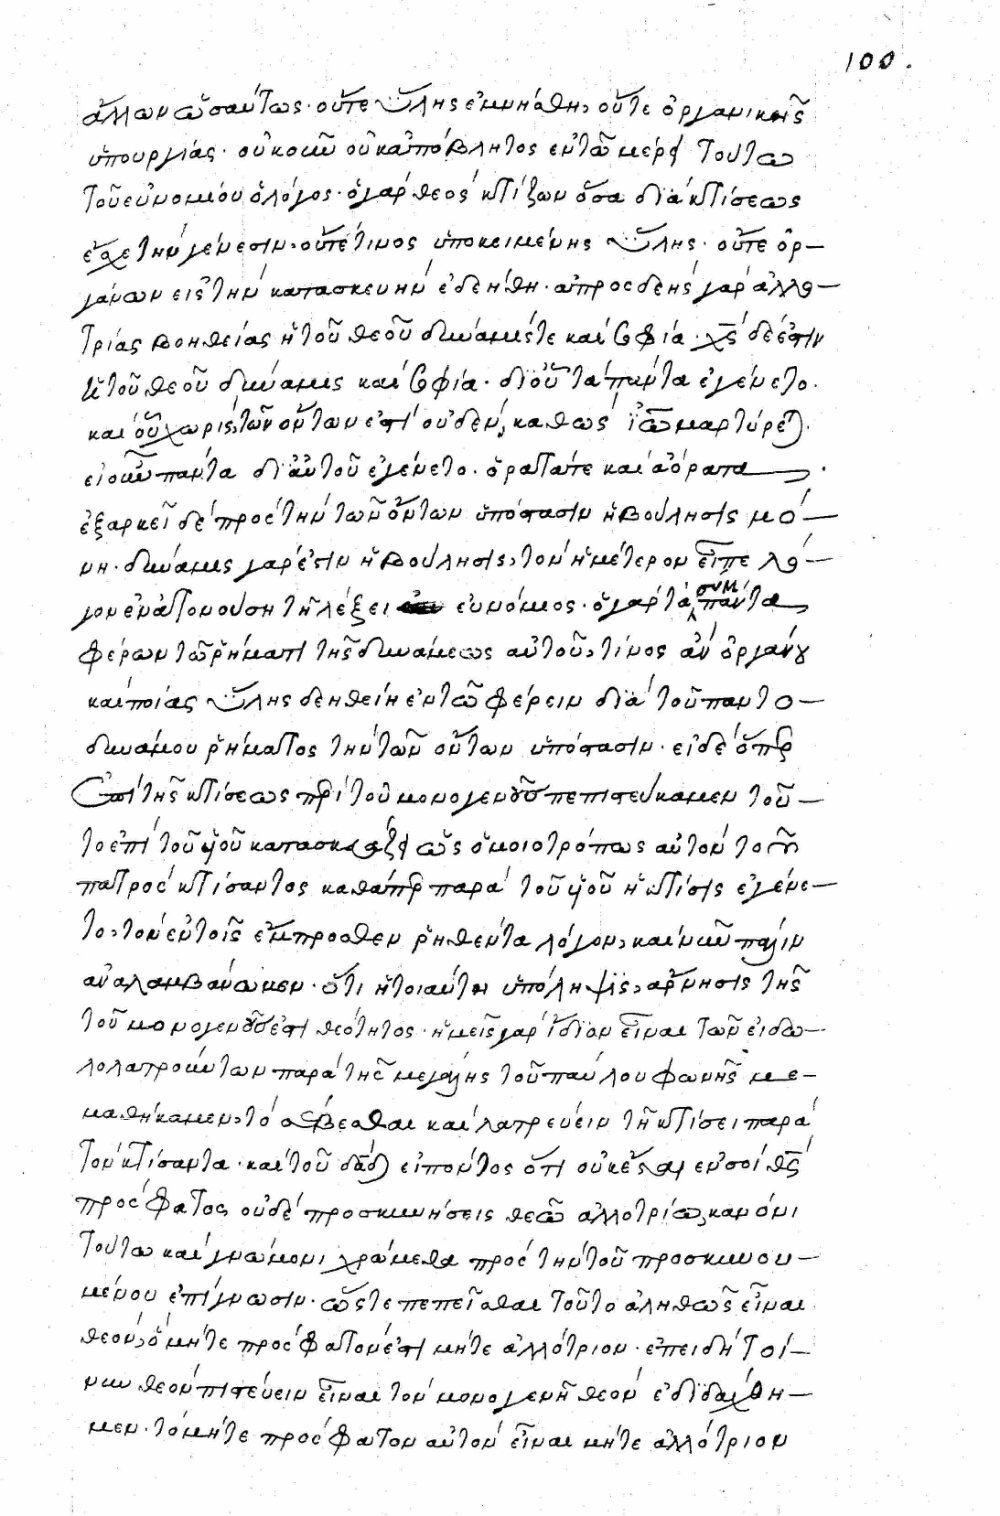 100.
ἄλλων ὡσαύτως· οὔτε ὕλης ἐμνήσθη, οὔτε ὀργανικῆς
ὑπουργίας· οὐκοῦν οὐκ ἀπόβλητος ἐν τῶ μέρει τούτω
τοῦ εὐνομίου ὁ λόγος· ὁ γὰρ θεὸς κτίζων ὅσα διὰ κτίσεως
ἔχε τὴν γένεσιν, οὔτέ τινος ὑποκειμένης ὕλης· οὔτε ὀρ-
γάνων εἰς τὴν κατασκευὴν ἐδεήθη· ἀπροσδεὴς γὰρ ἀλλο-
τρίας βοηθείας ἡ τοῦ θεοῦ δύναμίς τε καὶ σοφία· χς δέ ἐστιν
ἡ τοῦ θεοῦ δύναμις καὶ σοφία· δι οὗ τὰ πάντα ἐγένετο.
καὶ οὗ χωρὶς τῶν ὄντων ἐστὶ οὐδὲν, καθὼς ἰω μαρτύρει.
εἰ οὖν πάντα δι αὐτοῦ ἐγένετο· ὁρατά τε καὶ ἀόρατα.
ἐξαρκεῖ δὲ πρὸς τὴν τῶν ὄντων ὑπόστασιν ἡ βούλησις μό-
νη· δύναμις γάρ ἐστιν ἡ βούλησις, τὸν ἡμέτερον εἶπε λό-
γον ἐν ἀτονούση τῆ λέξει εὐνόμιος· ὁ γὰρ τὰ σύμπαντα
φέρων τῶ ῥήματι τῆς δυνάμεως αὐτοῦ, τίνος ἂν ὀργάνου
καὶ ποίας ὕλης δεηθείη ἐν τῶ φέρειν διὰ τοῦ παντο-
δυνάμου ῥήματος τὴν τῶν ὄντων ὑπόστασιν· εἰ δὲ ὅπερ
ἐπὶ τῆς κτίσεως περὶ τοῦ μονογενοῦς πεπιστεύκαμεν τοῦ-
το ἐπὶ τοῦ υἱοῦ κατασκευάζει ὡς ὁμοιοτρόπως αὐτὸν τοῦ
πατρὸς κτίσαντος καθάπερ παρὰ τοῦ υἱοῦ ἡ κτίσις ἐγένε-
το, τὸν ἐν τοῖς ἔμπροσθεν ῥηθέντα λόγον, καὶ νῦν πάλιν
ἀναλαμβάνωμεν· ὅτι ἡ τοιαύτη ὑπόληψις, ἄρνησις τῆς
τοῦ μονογενοῦς ἐστι θεότητος· ἡμεῖς γὰρ ἴδιον εἶναι τῶν εἰδω-
λολατρούντων παρὰ τῆς μεγάλης τοῦ παύλου φωνῆς με-
μαθήκαμεν, τὸ σέβεσθαι καὶ λατρεύειν τῆ κτίσει παρὰ
τὸν κτίσαντα· καὶ τοῦ δαδ εἰπόντος ὅτι οὐκ ἔσται ἐν σοὶ θς
πρόσφατος, οὐδὲ προσκυνήσεις θεῶ ἀλλοτρίω, κανόνι
τούτω καὶ γνώμονι χρώμεθα πρὸς τὴν τοῦ προσκυνου-
μένου ἐπίγνωσιν· ὥστε πεπεῖσθαι τοῦτο ἀληθῶς εἶναι
θεὸν, ὃ μήτε πρόσφατόν ἐστι μήτε ἀλλότριον· ἐπειδὴ τοί-
νυν θεὸν πιστεύειν εἶναι τὸν μονογενῆ θεὸν ἐδιδάχθη-
μεν· τὸ μήτε πρόσφατον αὐτὸν εἶναι μήτε ἀλλότριον